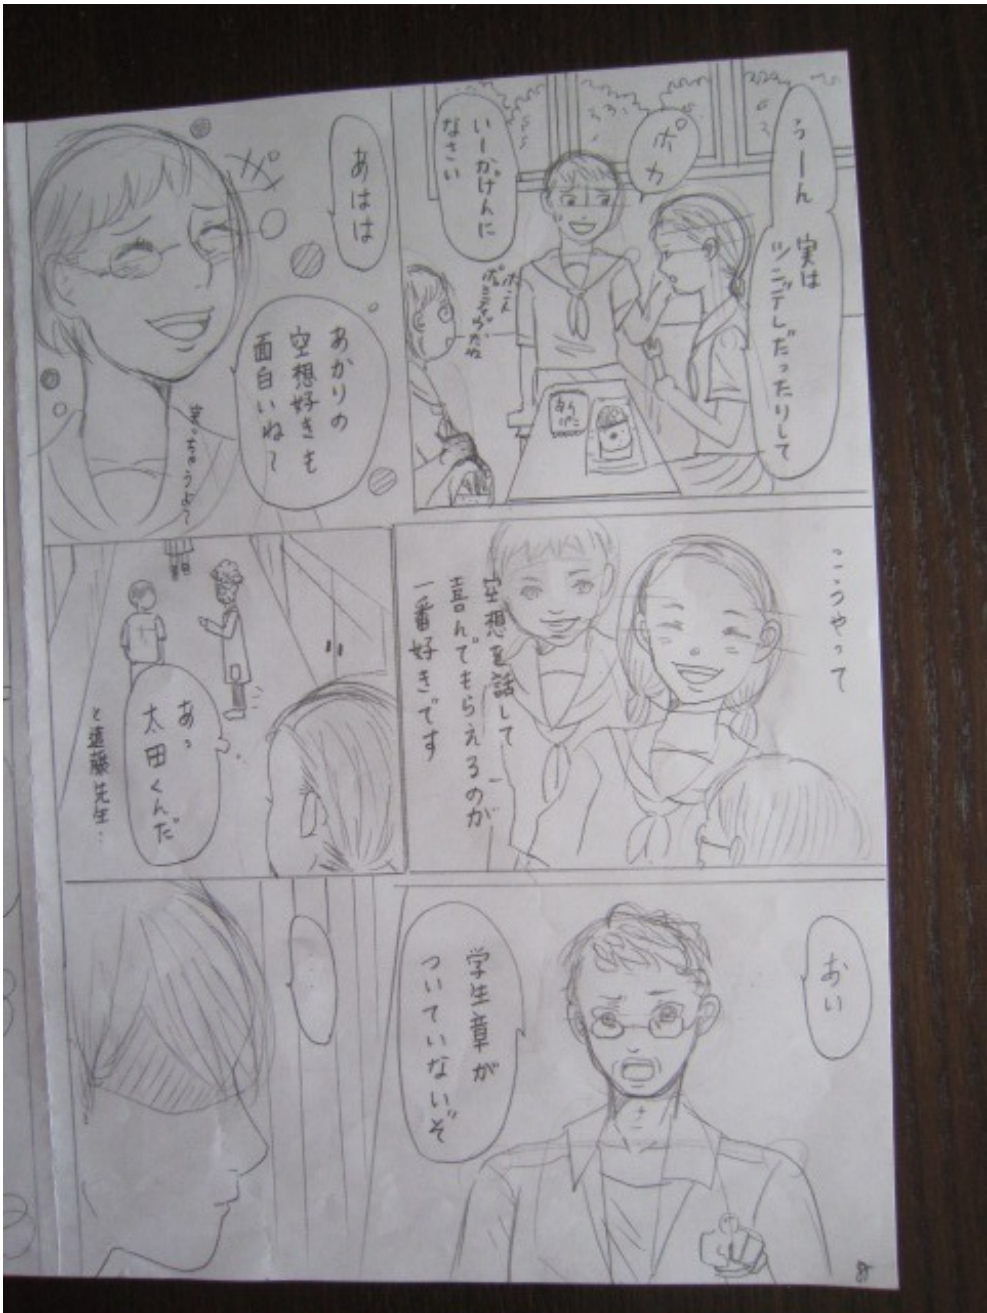 うーん
実は
ツンデレだったりして
ポカ
いーかげんに
なさい
あはは
あかりの
空想好きも
面白いね〜
笑っちゃうよ〜
こうやって
空想を話して
喜んでもらえるのが
一番好きです
あっ
太田くんだ
と遠藤先生…
おい
学生章が
ついていないぞ